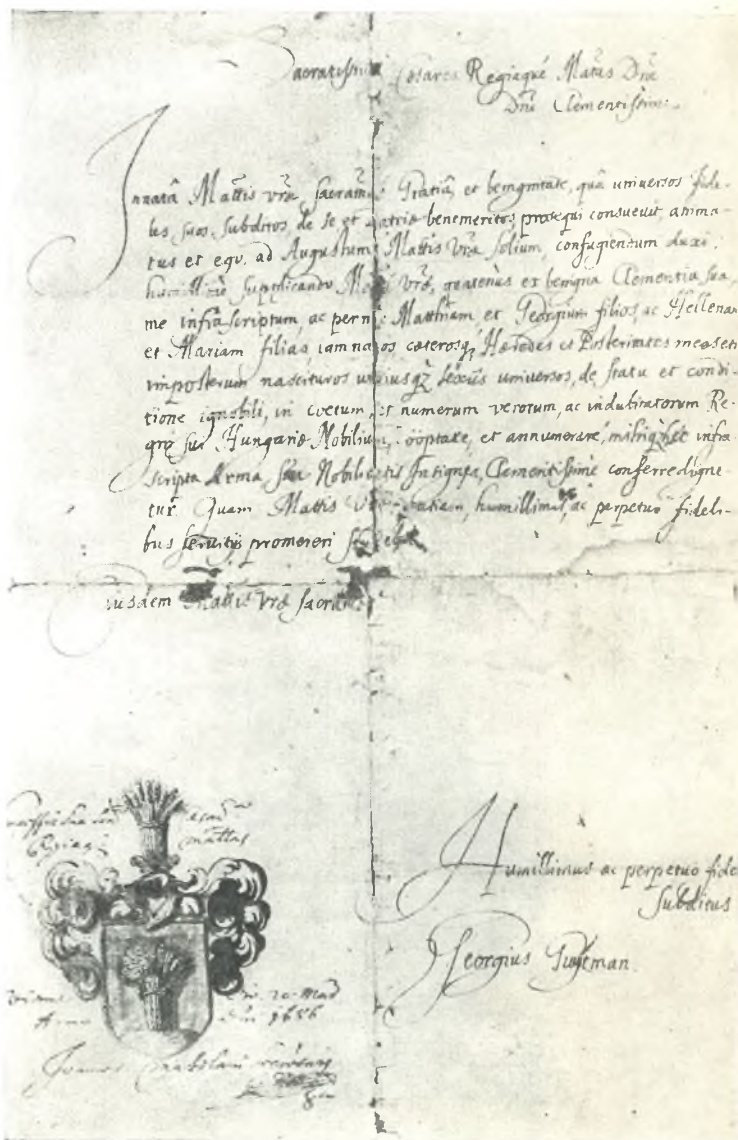 Sacratissima Cesarea Regiaque Mattas Dne
Dne Clementissime.
Innatâ Mattis vrae sacratme Gratiâ, et benignitate, quâ universos fide-
les suos subditos, de se et patria benemeritos prosequi consuevit anima-
tus et ego, ad Augustum Mattis Vrae solium, confugiendum duxi,
humillime supplicando Matti Vrae, quatenus ex benigna Clementia sua,
me infrascriptum, ac per me Matthiam et Georgium filios, ac Hellenam
et Mariam filias iam natos caeterosqz Haeredes et Posteritates meas
imposterum nascituros utriusqz sexûs universos, de statu et condi-
tione ignobili, in coetum, et numerum verorum, ac indubitatorum Re-
gni sui Hungariae Nobilium, cooptare, et annumerare, mihiqz haec infra
scripta Arma, seu Nobilitatis Insignia, Clementissime conferre digne-
tur. Quam Mattis Vrae gratiam, humillimis, ac perpetuo fideli-
bus servitijs promereri
Eiusdem Mattis Vrae Sacratme
Humillimus ac perpetuo fide
Subditus
Georgius
1656